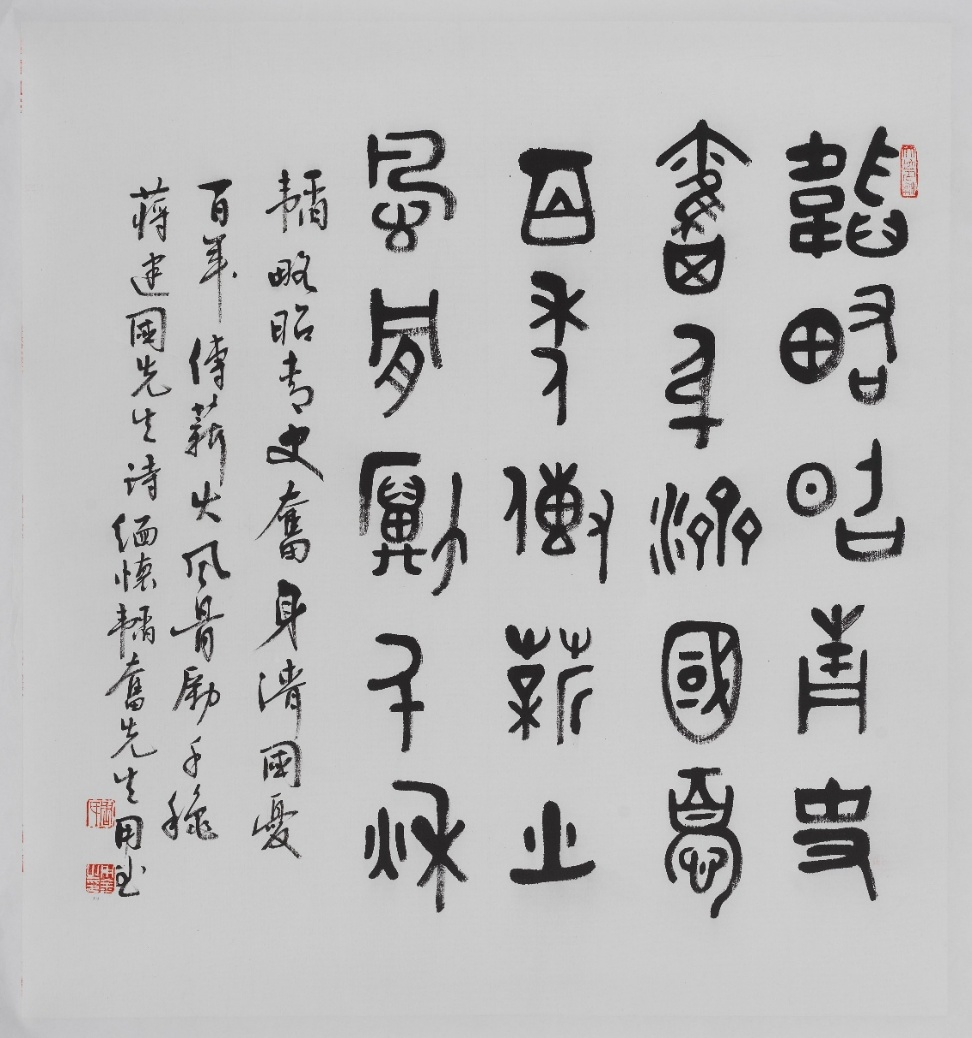 韜略昭青史
奮身濟國憂
百年傳薪火
風骨勵千秋
韜略昭青史奮身濟國憂
百年傳薪火風骨勵千穐
蔣建國先生诗缅懷韜奮先生